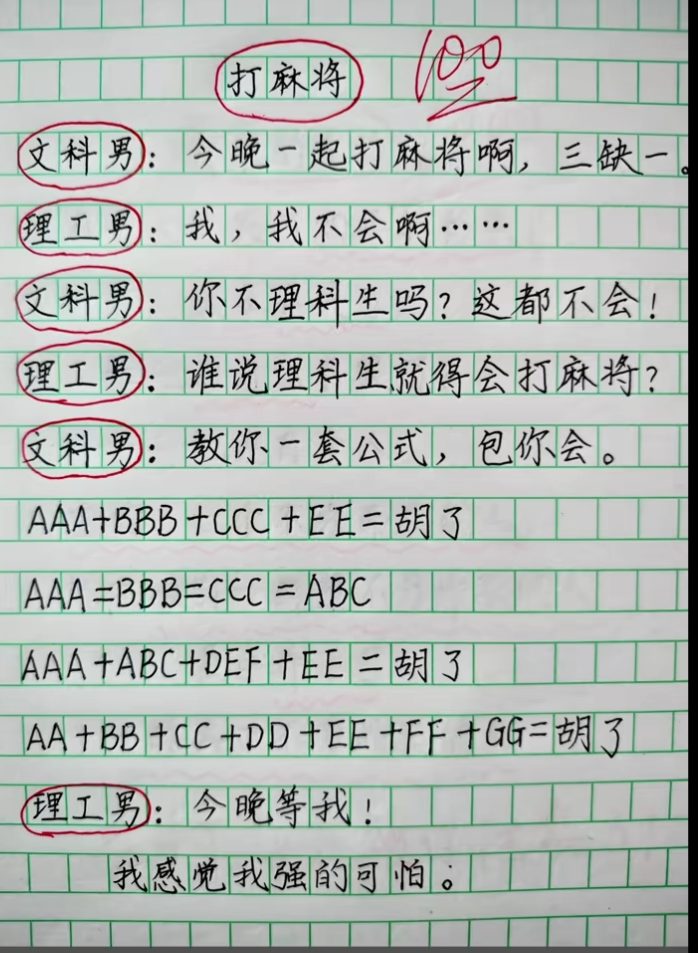 打麻将 100
文科男：今晚一起打麻将啊，三缺一。
理工男：我，我不会啊……
文科男：你不理科生吗？这都不会！
理工男：谁说理科生就得会打麻将？
文科男：教你一套公式，包你会。
AAA+BBB+CCC+EE=胡了
AAA=BBB=CCC=ABC
AAA+ABC+DEF+EE=胡了
AA+BB+CC+DD+EE+FF+GG=胡了
理工男：今晚等我！
我感觉我强的可怕。